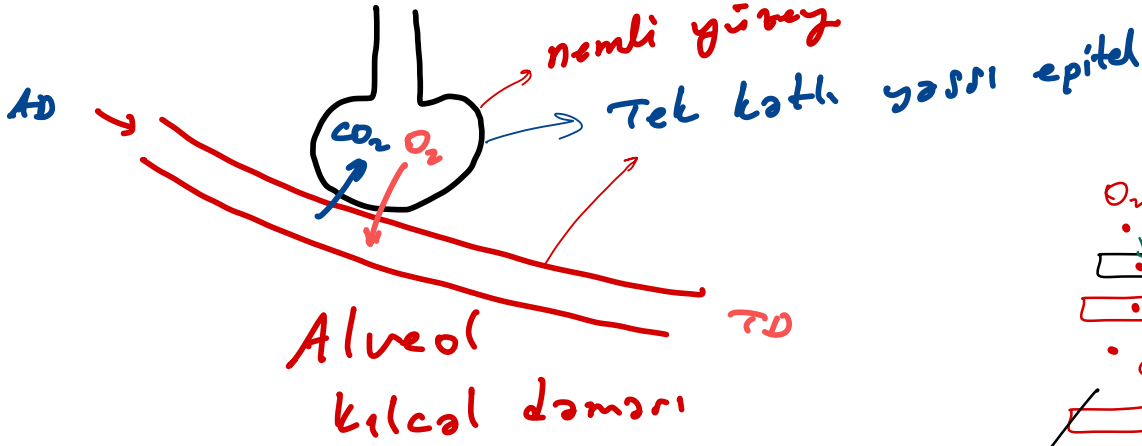 nemli yüzey
AD
Tek katlı yassı epitel
CO₂ O₂
O₂
TD
Alveol
kılcal damarı